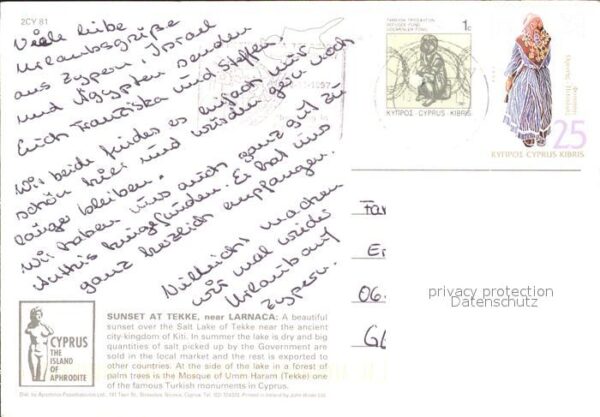 2CY 81
Viele liebe
Urlaubsgrüße
aus Zypern, Israel
und Ägypten senden
Euch Franziska und Steffen.
Wir beide finden es einfach nur
schön hier und würden gern noch
länger bleiben.
Wir haben uns auch ganz gut zu
hingefunden. Er hat uns
ganz herzlich empfangen.
Vielleicht machen
wir mal wieder
Urlaub auf
Zypern.
1997
REFUGEE FUND
1c
ΚΥΠΡΟΣ·CYPRUS·KIBRIS
25
ΚΥΠΡΟΣ CYPRUS KIBRIS
Fa
E
06
G
privacy protection
Datenschutz
CYPRUS
THE
ISLAND
OF
APHRODITE
SUNSET AT TEKKE, near LARNACA: A beautiful
sunset over the Salt Lake of Tekke near the ancient
city-kingdom of Kiti. In summer the lake is dry and big
quantities of salt picked up by the Government are
sold in the local market and the rest is exported to
other countries. At the side of the lake in a forest of
palm trees is the Mosque of Umm Haram (Tekke) one
of the famous Turkish monuments in Cyprus.
Printed in Ireland by John Hinde Ltd.